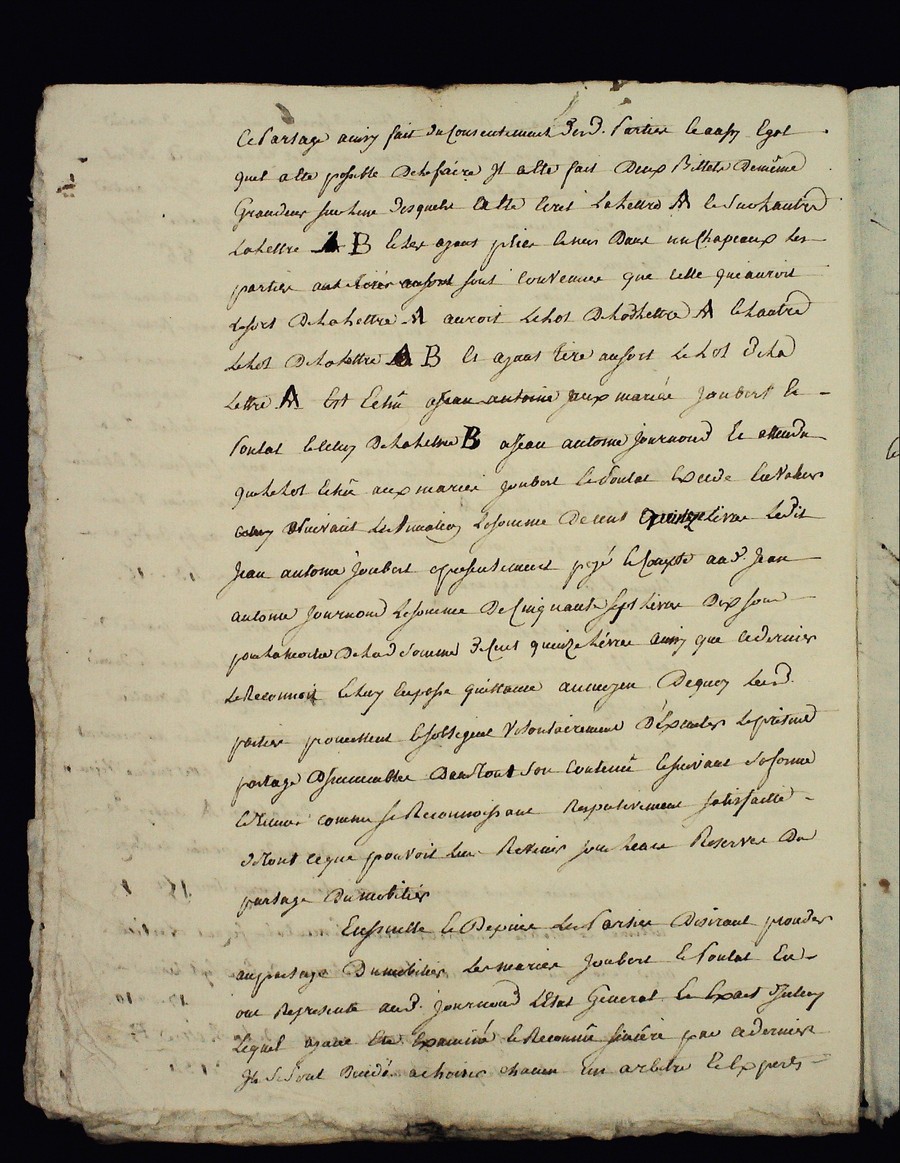 Ce Partage ainsy fait du Consentement desd. Parties et aussy Egal
quil a eté possible de le faire Il a eté fait Deux Billets de même
Grandeur sur l'un desquels a eté ecrit la lettre A et sur l'autre
la lettre B et les ayant plié et mis dans un Chapeaux les
parties sont convenues que celle qui auroit
le sort de la lettre A auroit le lot de lad lettre A et l'autre
le lot de la lettre B Et ayant tiré au sort le lot de la
lettre A Est Echu aux mariés Joubert et
Pontal et celuy de la lettre B a Jean antoine Journoud Et attendu
que le lot Echu aux mariés Joubert et Pontal Excede En valeur
suivant l'Estimation la somme de cent quinze livres Ledit
Jean antoine Joubert a presentement payé et Compté aud. Jean
antoine Journoud la somme de Cinquante sept livres Dix sous
pour la moitié de lad somme de Cent quinze livres ainsy que ce dernier
le Reconnoit et luy en passe quittance au moyen de quoy lesd.
parties promettent et sobligent Volontairement d'Executer le présent
partage d'immeubles dans tout son contenu et suivant sa forme
et teneur comme se Reconnoissant Respectivement satisfaitte
de tout ce que pouvoit leur Revenir sous leurs Reserves du
partage du mobilier
Ensuitte et Depuis les Parties Desirant proceder
au partage du mobilier les mariés Joubert et Pontal En
ont Representé aud. Journoud l'Etat General et Exact d'Iceluy
lequel ayant Eté Examiné et Reconnu sincère par ce dernier
Ils se sont Decidé a choisir chacun un arbitre et Experts